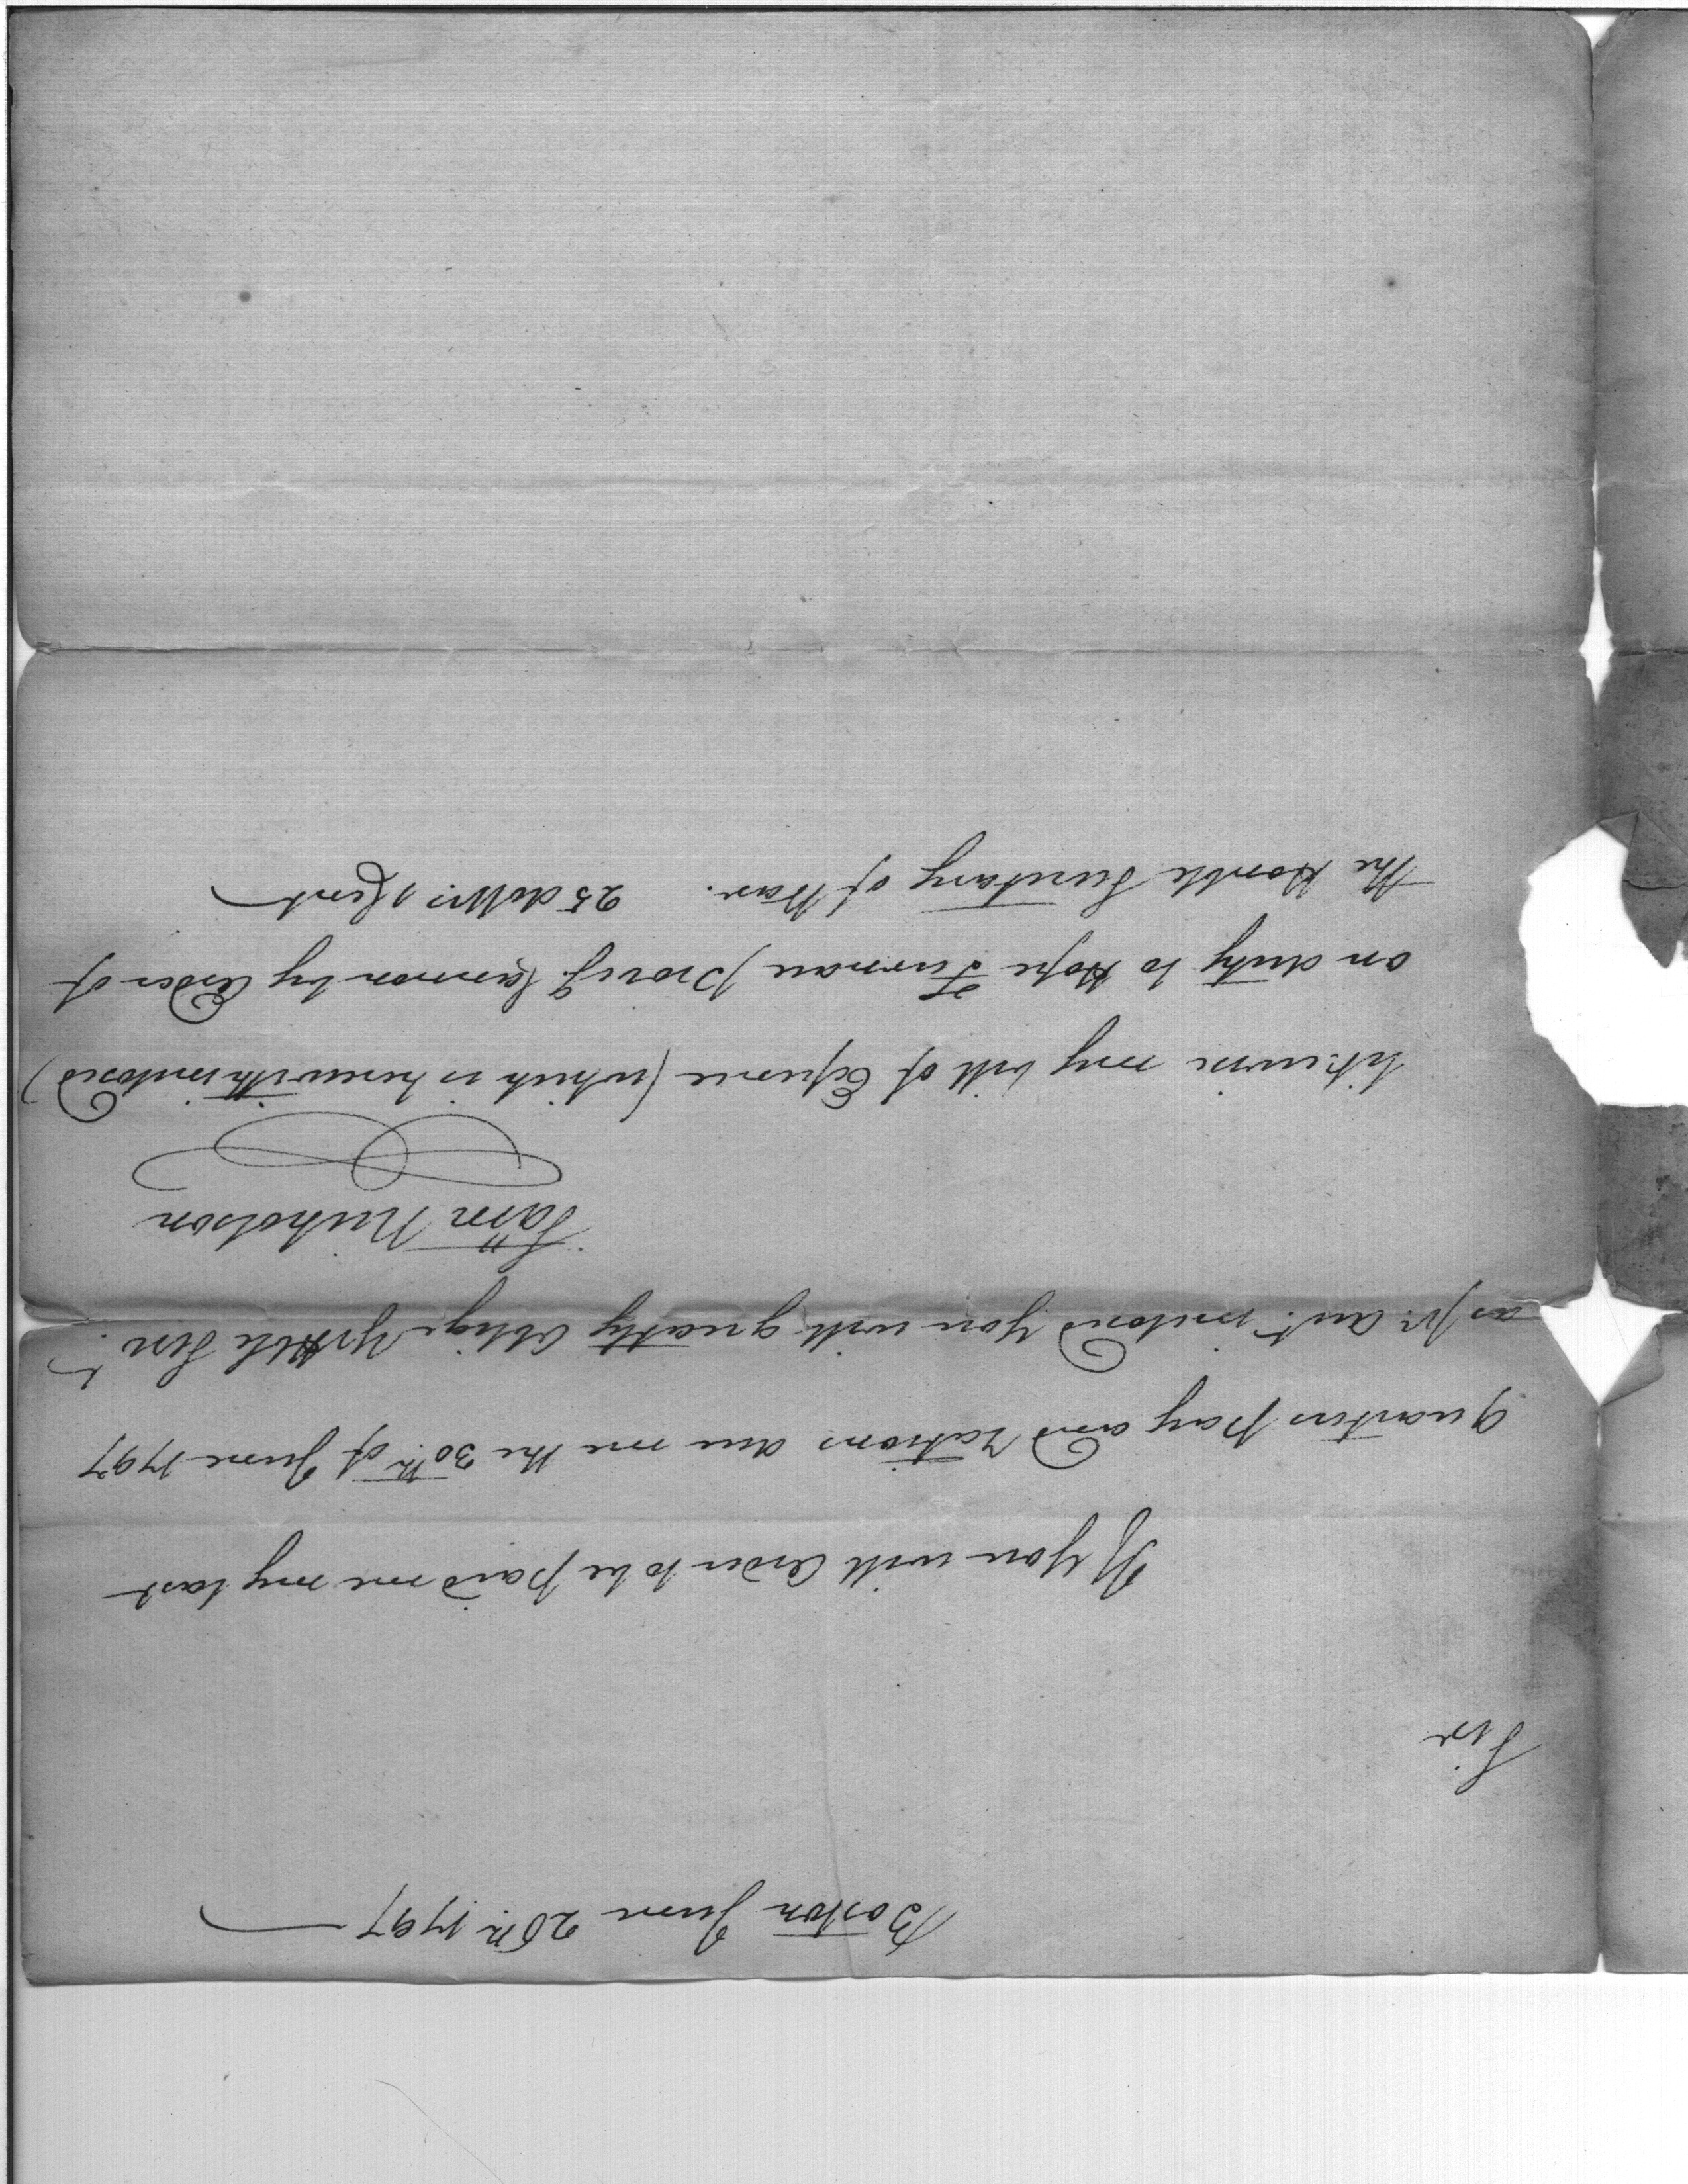 Boston June 26th. 1797
Sir
If you will Order to be paid me my last
quarters Pay and Rations due me the 30th. of June 1797
as pr. Act. inclosed you will greatly Oblige Yr Hble Sert.
Saml Nicholson
likewise my bill of Expence (which is herewith inclosed)
on duty to Hope Furnace proveg. Cannon by Order of
the Honble Secretary of War. 25 dollrs. 1 Cent